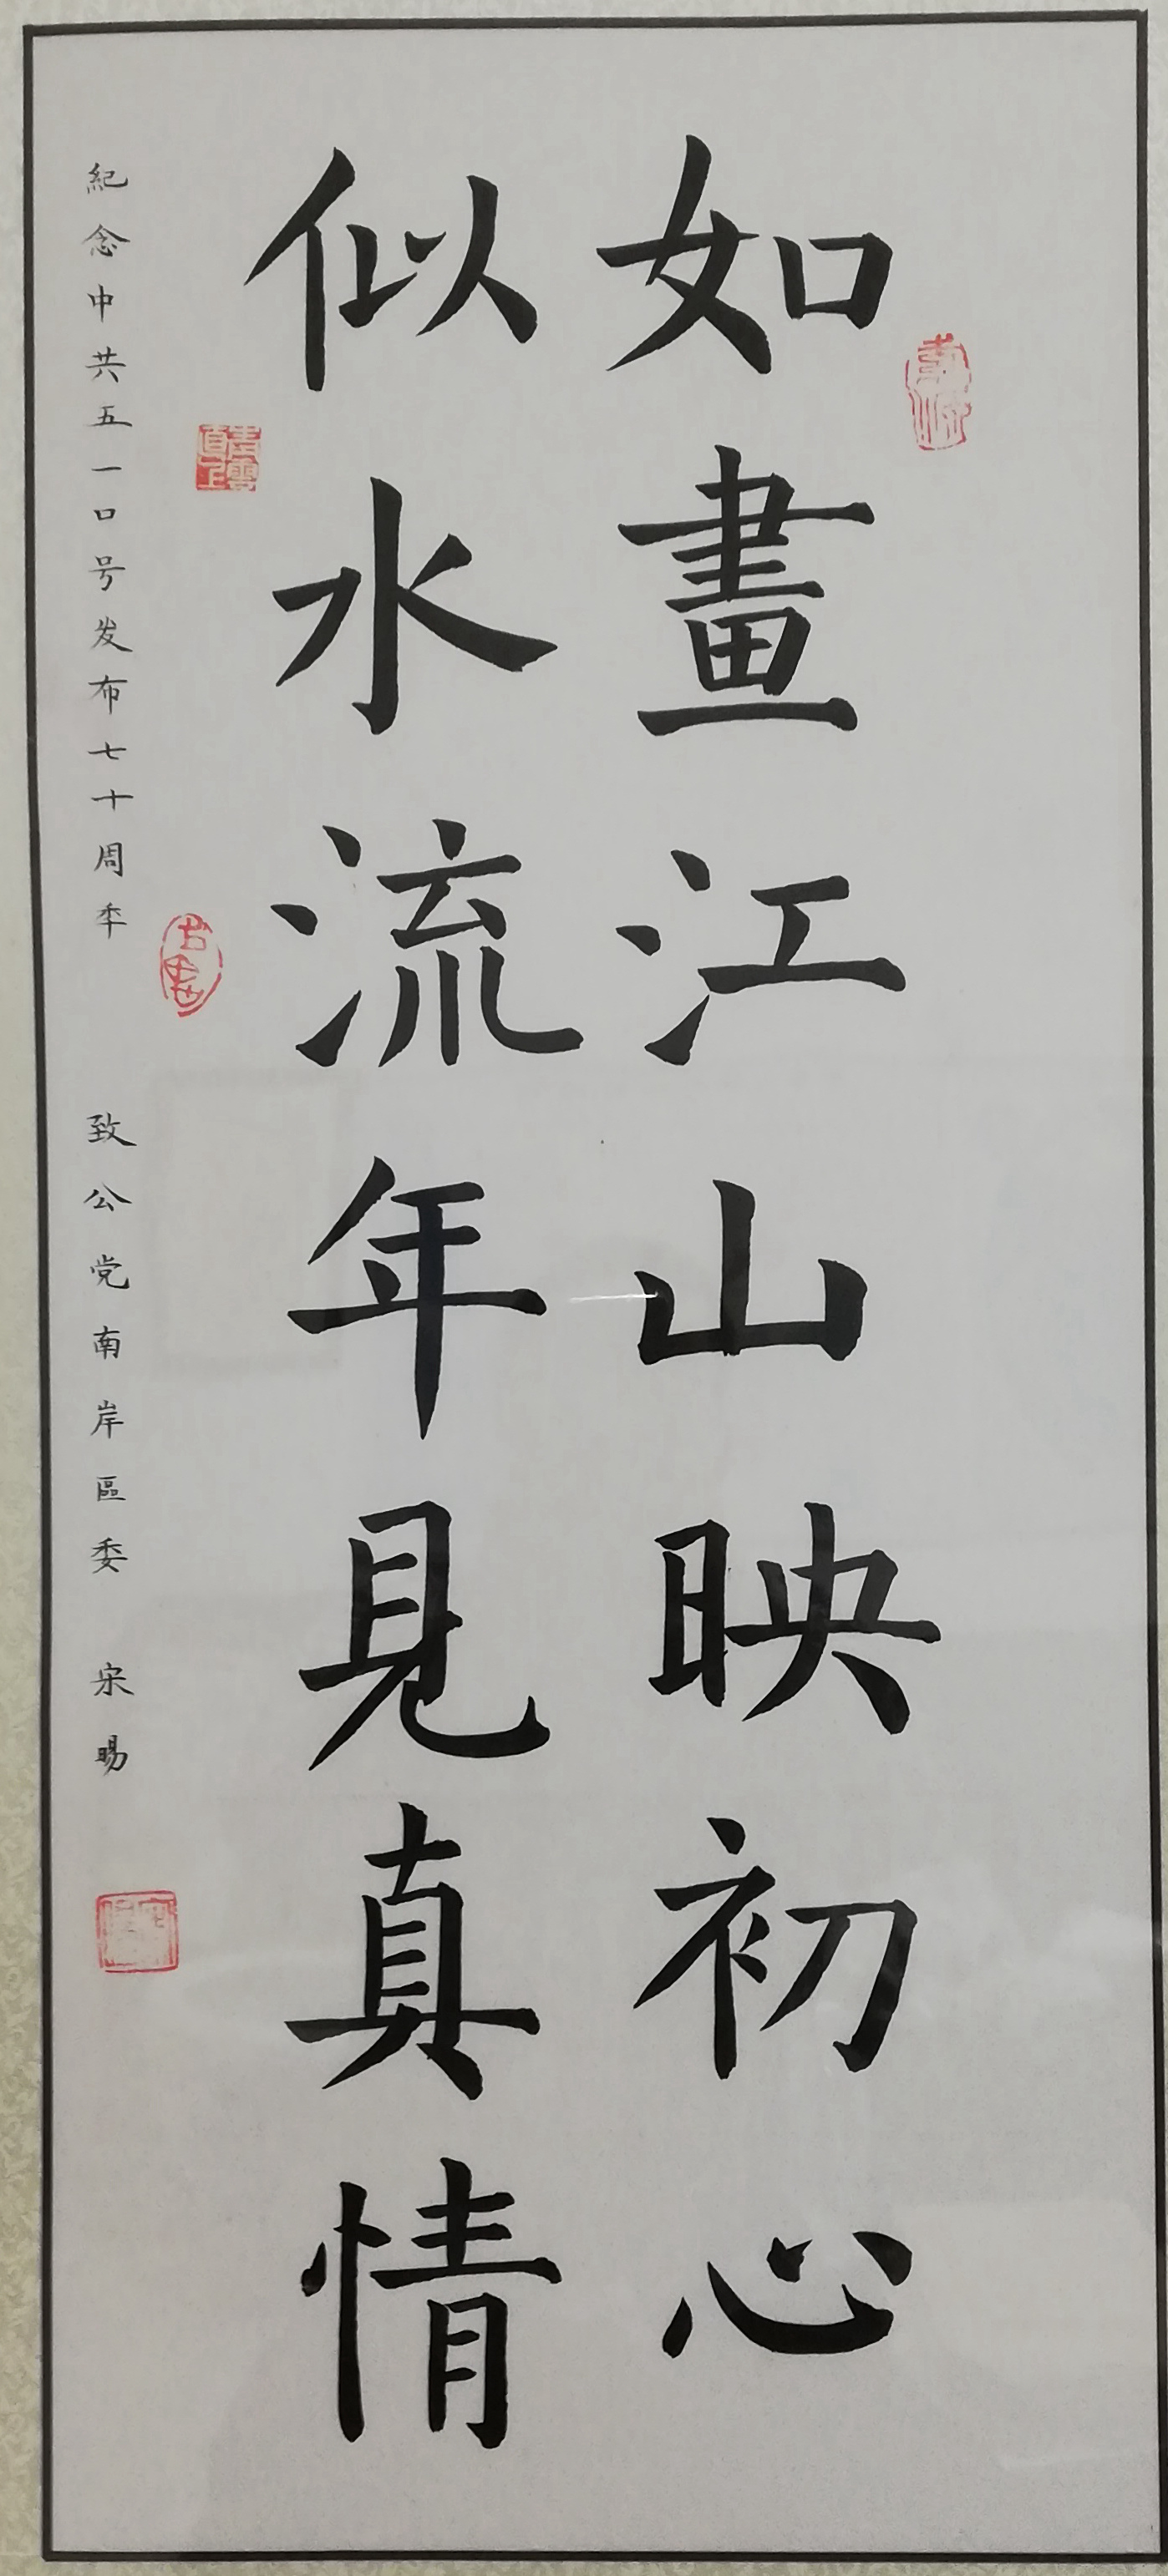 如畫江山映初心
似水流年見真情
紀念中共五一口号发布七十周年
致公党南岸區委 宋暘
青雲直上